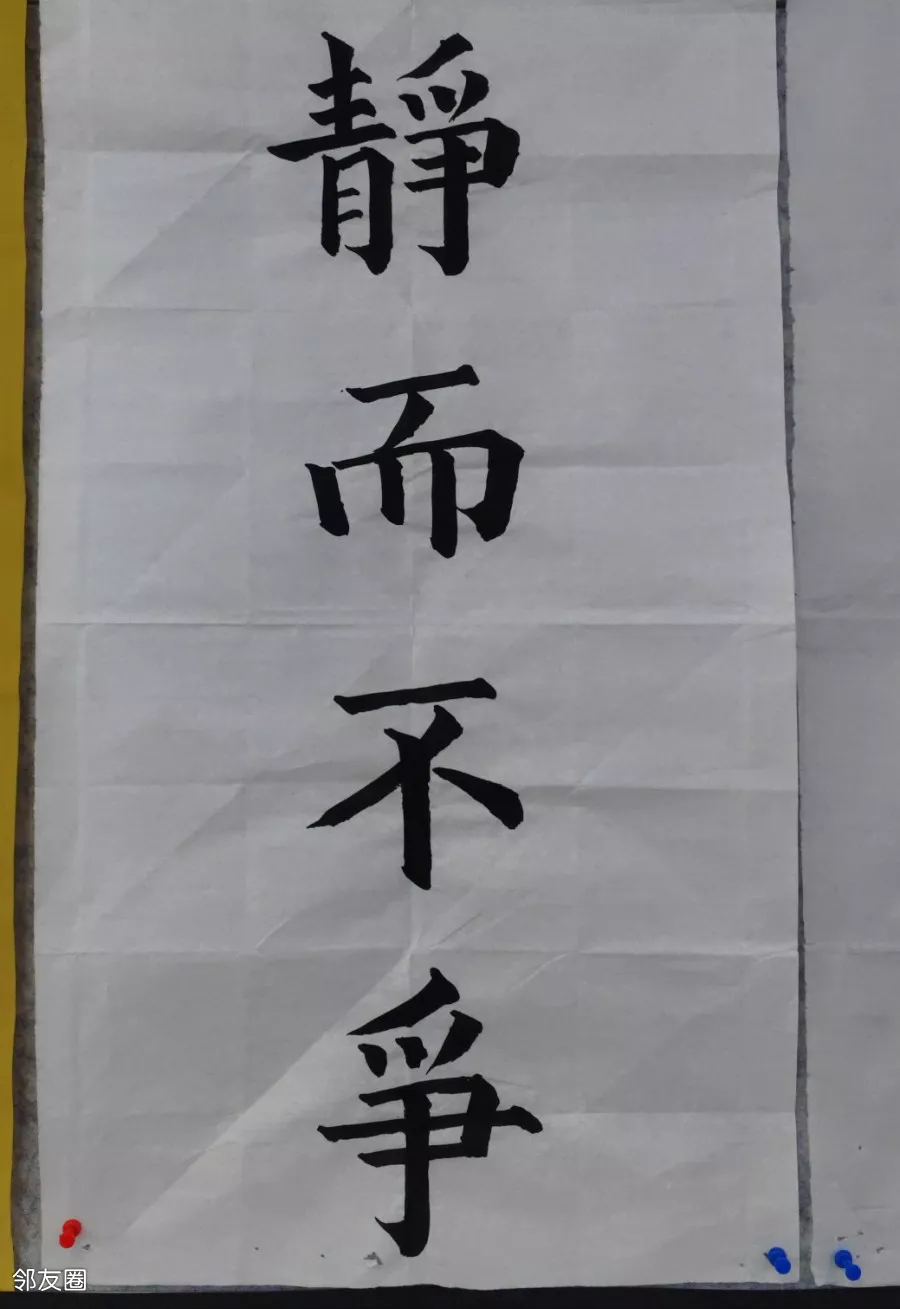 靜而不爭
邻友圈